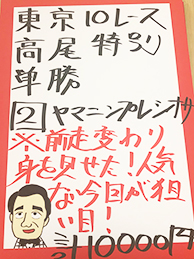 東京10レース
高尾特別
単勝
2 ヤマニンプレシオサ
※前走変わり
身を見せた!人気
ない今回が狙
い目!
計10000円